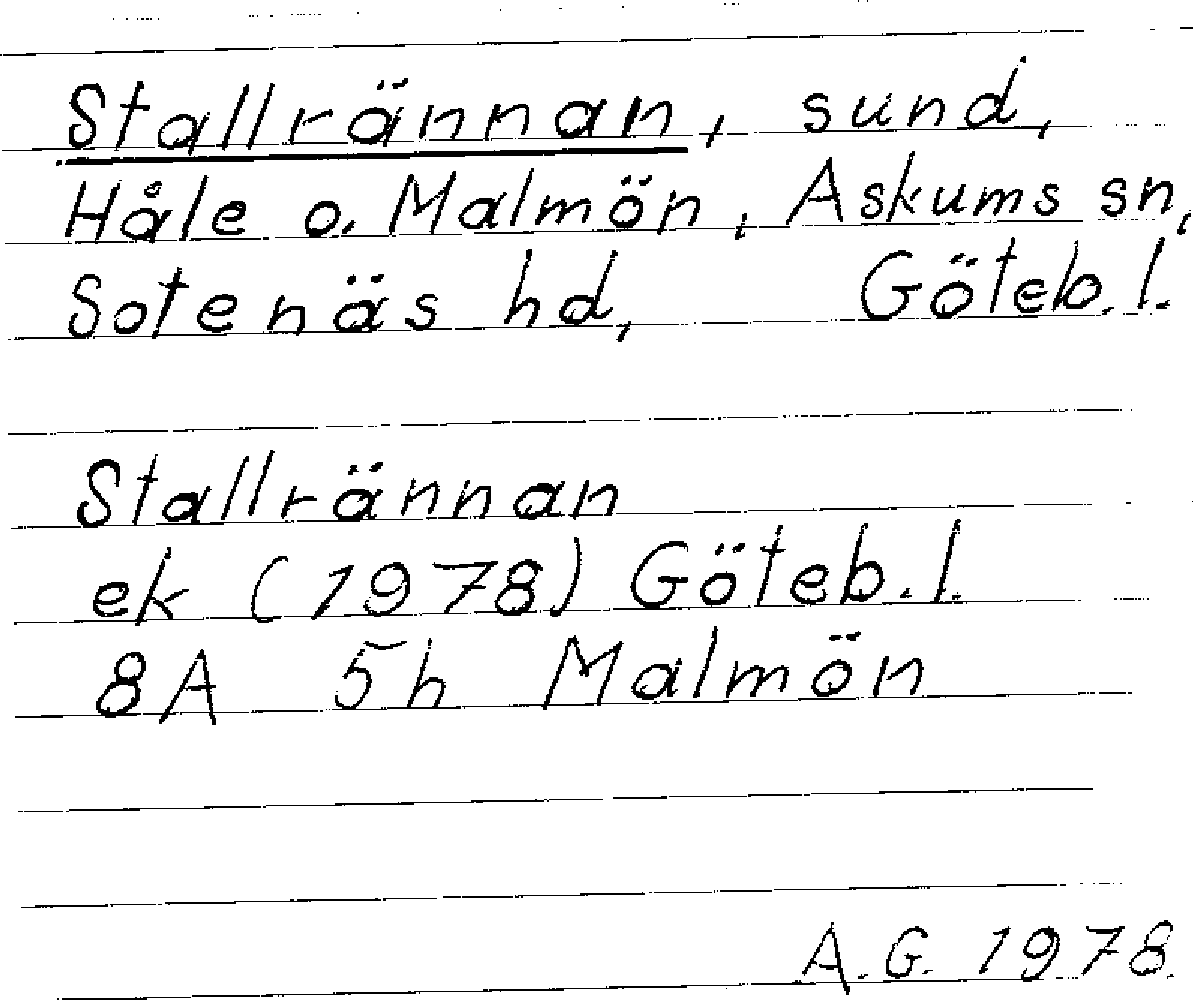 Stallrännan, sund,
Håle o. Malmön, Askums sn,
Sotenäs hd, Göteb. l.
Stallrännan
ek (1978) Göteb. l.
8A 5h Malmön
A.G. 1978.